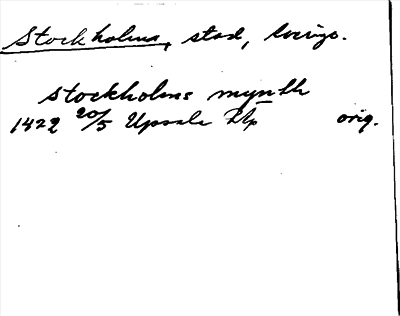 Stockholm, stad, Sverige.
Stockholms mynth
1422 20/5 Upsala orig.